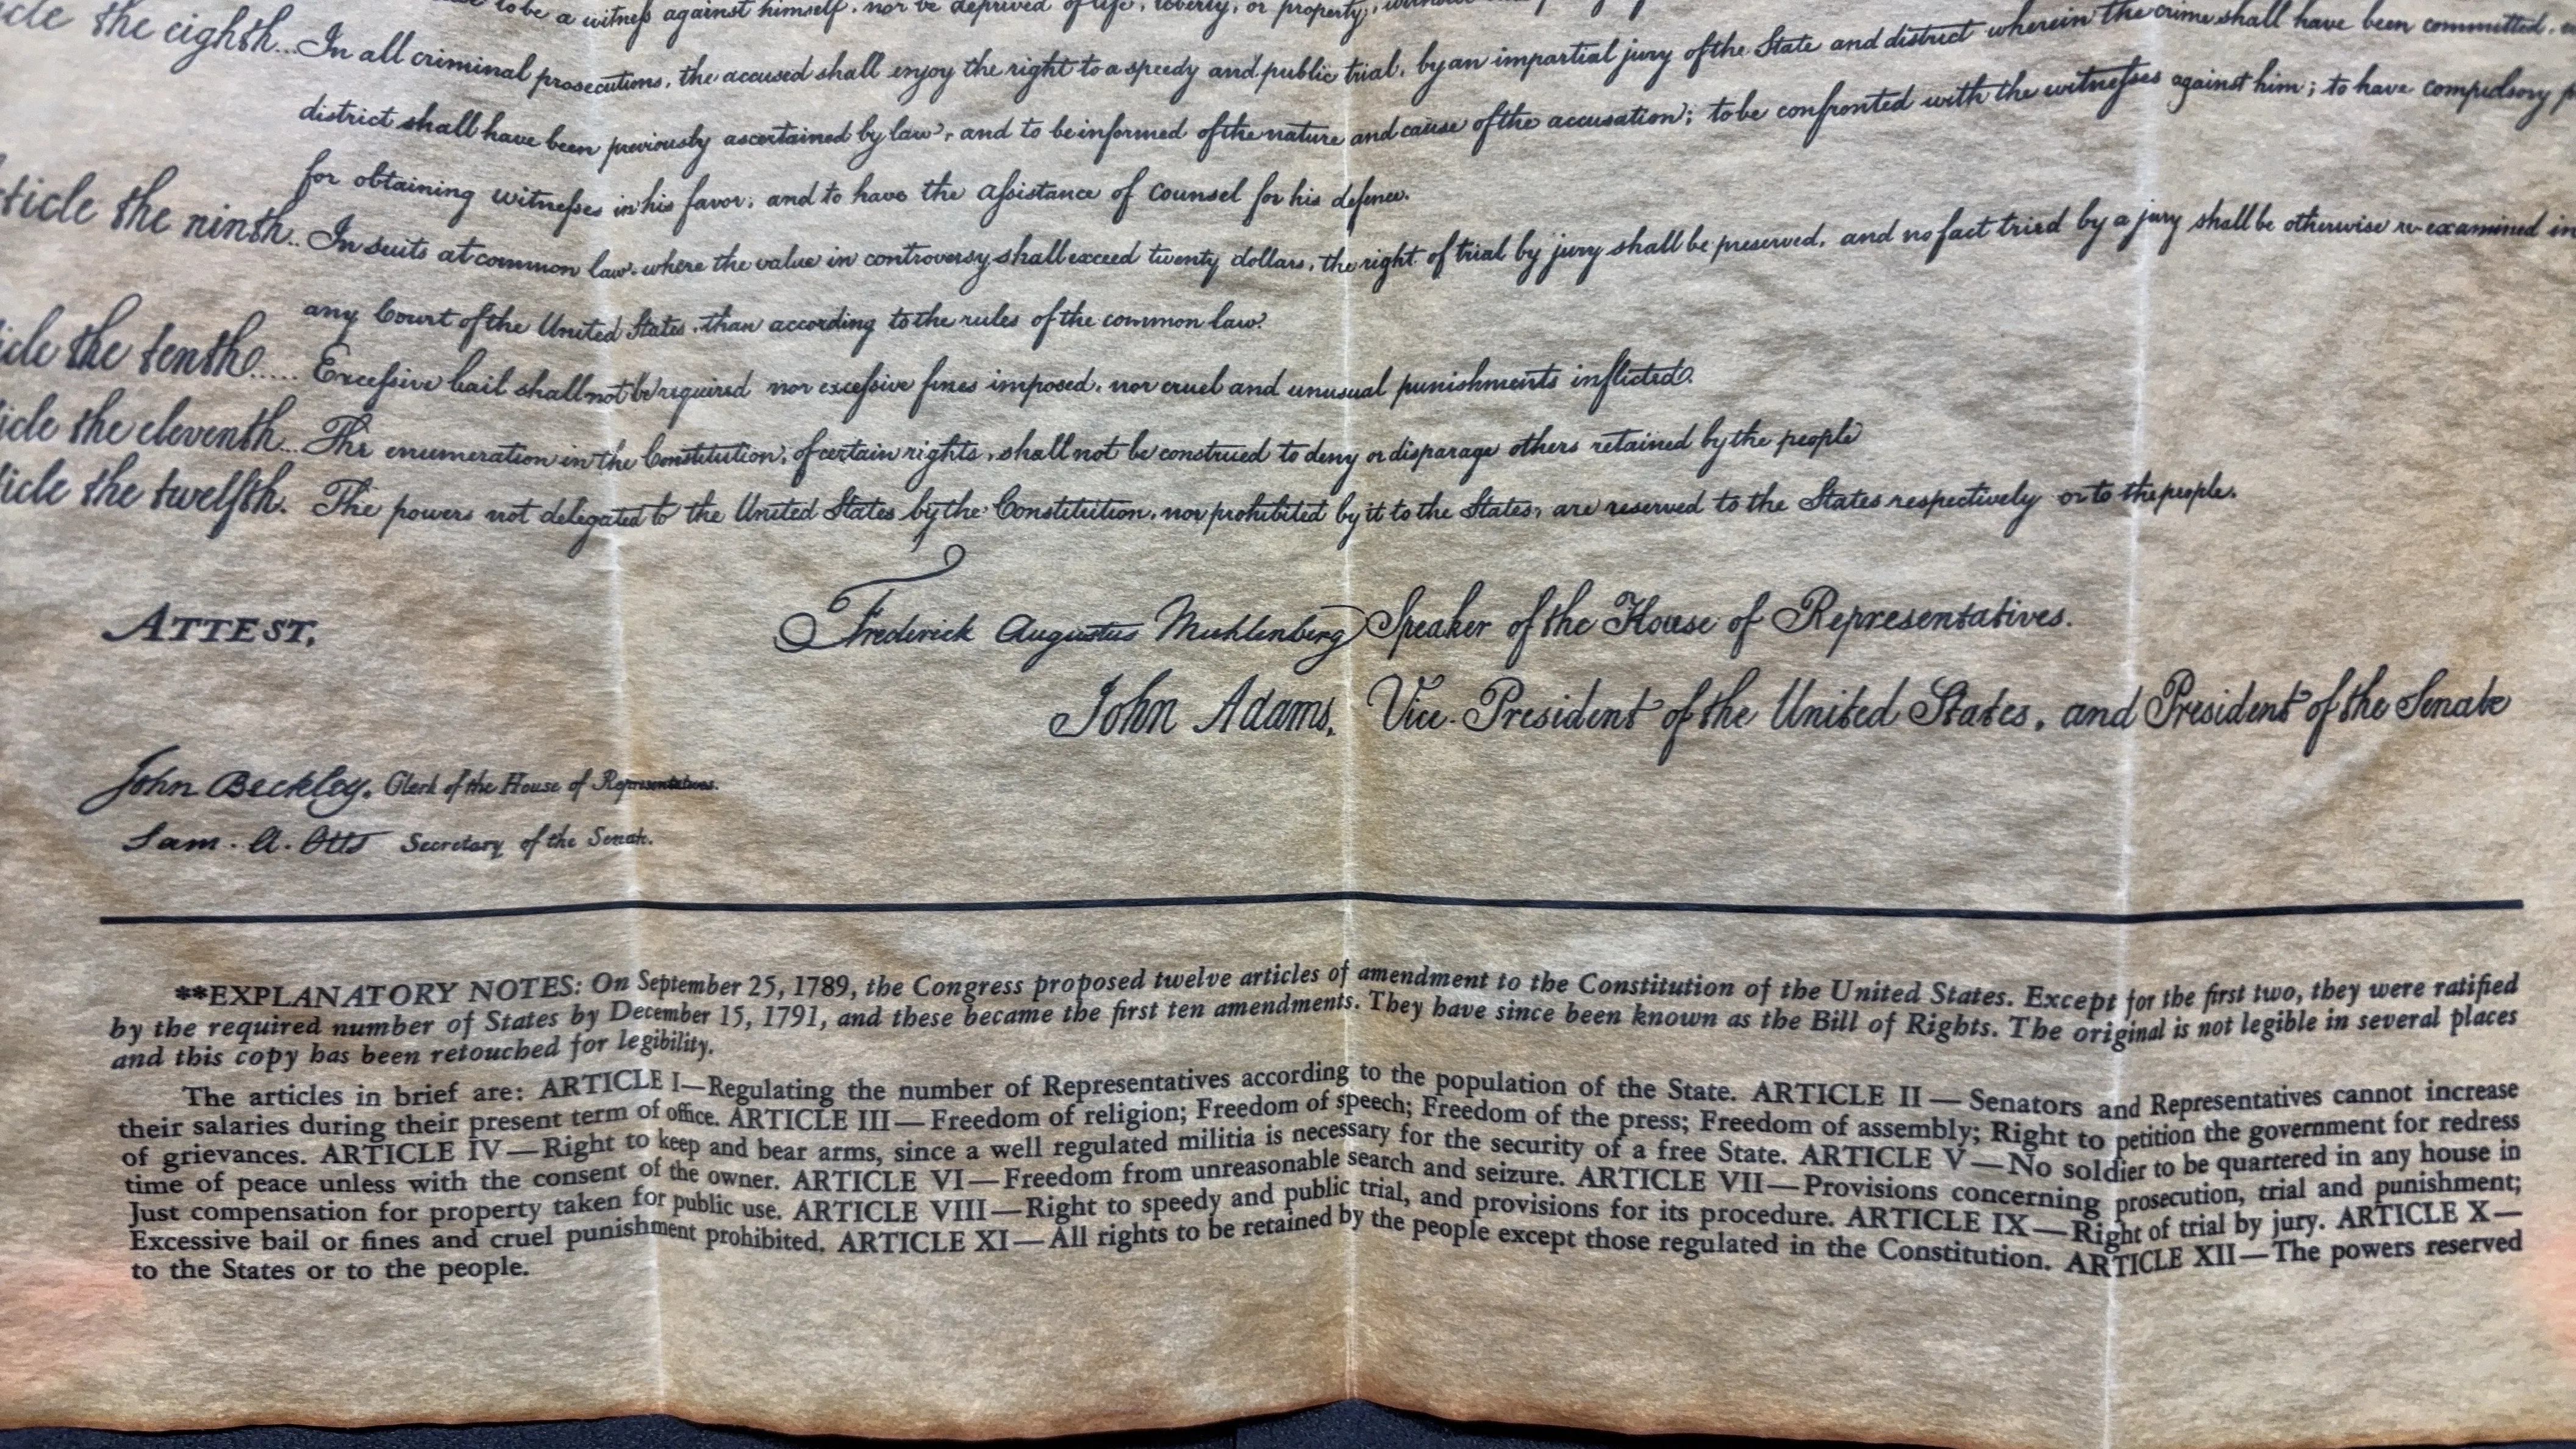 to be a witness against himself, nor be deprived of life, liberty, or property,
cle the eighth... In all criminal prosecutions, the accused shall enjoy the right to a speedy and public trial, by an impartial jury of the State and district wherein the crime shall have been committed,
district shall have been previously ascertained by law, and to be informed of the nature and cause of the accusation; to be confronted with the witnesses against him; to have compulsory
for obtaining witnesses in his favor, and to have the assistance of counsel for his defence.
ticle the ninth.. In suits at common law, where the value in controversy shall exceed twenty dollars, the right of trial by jury shall be preserved, and no fact tried by a jury shall be otherwise re-examined in
any Court of the United States, than according to the rules of the common law.
icle the tenth..... Excessive bail shall not be required nor excessive fines imposed, nor cruel and unusual punishments inflicted.
icle the eleventh... The enumeration in the Constitution, of certain rights, shall not be construed to deny or disparage others retained by the people
ticle the twelfth. The powers not delegated to the United States by the Constitution, nor prohibited by it to the States, are reserved to the States respectively or to the people.
ATTEST,
Frederick Augustus Muhlenberg Speaker of the House of Representatives.
John Adams, Vice-President of the United States, and President of the Senate
John Beckley, Clerk of the House of Representatives.
Sam. A. Otis Secretary of the Senate.
**EXPLANATORY NOTES: On September 25, 1789, the Congress proposed twelve articles of amendment to the Constitution of the United States. Except for the first two, they were ratified
by the required number of States by December 15, 1791, and these became the first ten amendments. They have since been known as the Bill of Rights. The original is not legible in several places
and this copy has been retouched for legibility.
The articles in brief are: ARTICLE I—Regulating the number of Representatives according to the population of the State. ARTICLE II — Senators and Representatives cannot increase
their salaries during their present term of office. ARTICLE III — Freedom of religion; Freedom of speech; Freedom of the press; Freedom of assembly; Right to petition the government for redress
of grievances. ARTICLE IV—Right to keep and bear arms, since a well regulated militia is necessary for the security of a free State. ARTICLE V—No soldier to be quartered in any house in
time of peace unless with the consent of the owner. ARTICLE VI—Freedom from unreasonable search and seizure. ARTICLE VII—Provisions concerning prosecution, trial and punishment;
Just compensation for property taken for public use. ARTICLE VIII—Right to speedy and public trial, and provisions for its procedure. ARTICLE IX—Right of trial by jury. ARTICLE X—
Excessive bail or fines and cruel punishment prohibited. ARTICLE XI—All rights to be retained by the people except those regulated in the Constitution. ARTICLE XII—The powers reserved
to the States or to the people.